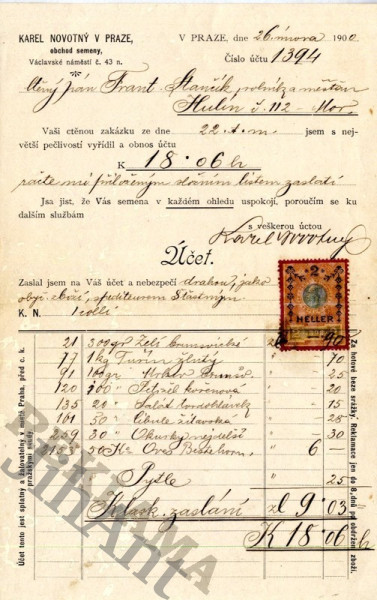 KAREL NOVOTNÝ V PRAZE,
obchod semeny,
Václavské náměstí č. 43 n.
V PRAZE, dne 26 února 1900
Číslo účtu 1394
Ctěný pán Frant. Stančík, rolník a měšťan
Hulín č. 112 - Mor.
Vaši ctěnou zakázku ze dne 22. t. m. jsem s nej-
větší pečlivostí vyřídil a obnos účtu
K 18·06 h
račte mně přiloženým složním lístem zaslati
Jsa jist, že Vás semena v každém ohledu uspokojí, poroučím se ku
dalším službám
s veškerou úctou
Karel Novotný
Účet.
Zaslal jsem na Váš účet a nebezpečí drahou, jako
obyč. zboží, spediteurem Šťastným
K. N. 1 colli
2
HELLER
21 300 gr Zelí brunšvické zl 90
77 1 kg Tuřín žlutý 70
91 10 gr Mrkev 25
120 100 Petržel kořenová 20
135 20 Salát 15
101 50 Cibule žitavská 28
259 30 Okurky 30
2153 50 Ko Oves Beseler 6 —
Pytle 25
Klad. zaslání zl 9·03
K 18·06 h
Účet tento jest splatný a žalovatelný v městě Praha, před c. k.
pražskými soudy
Za hotové beze srážky. Reklamace jen do 8 dnů po obdržení zboží.
REKLAMA
JihAnt